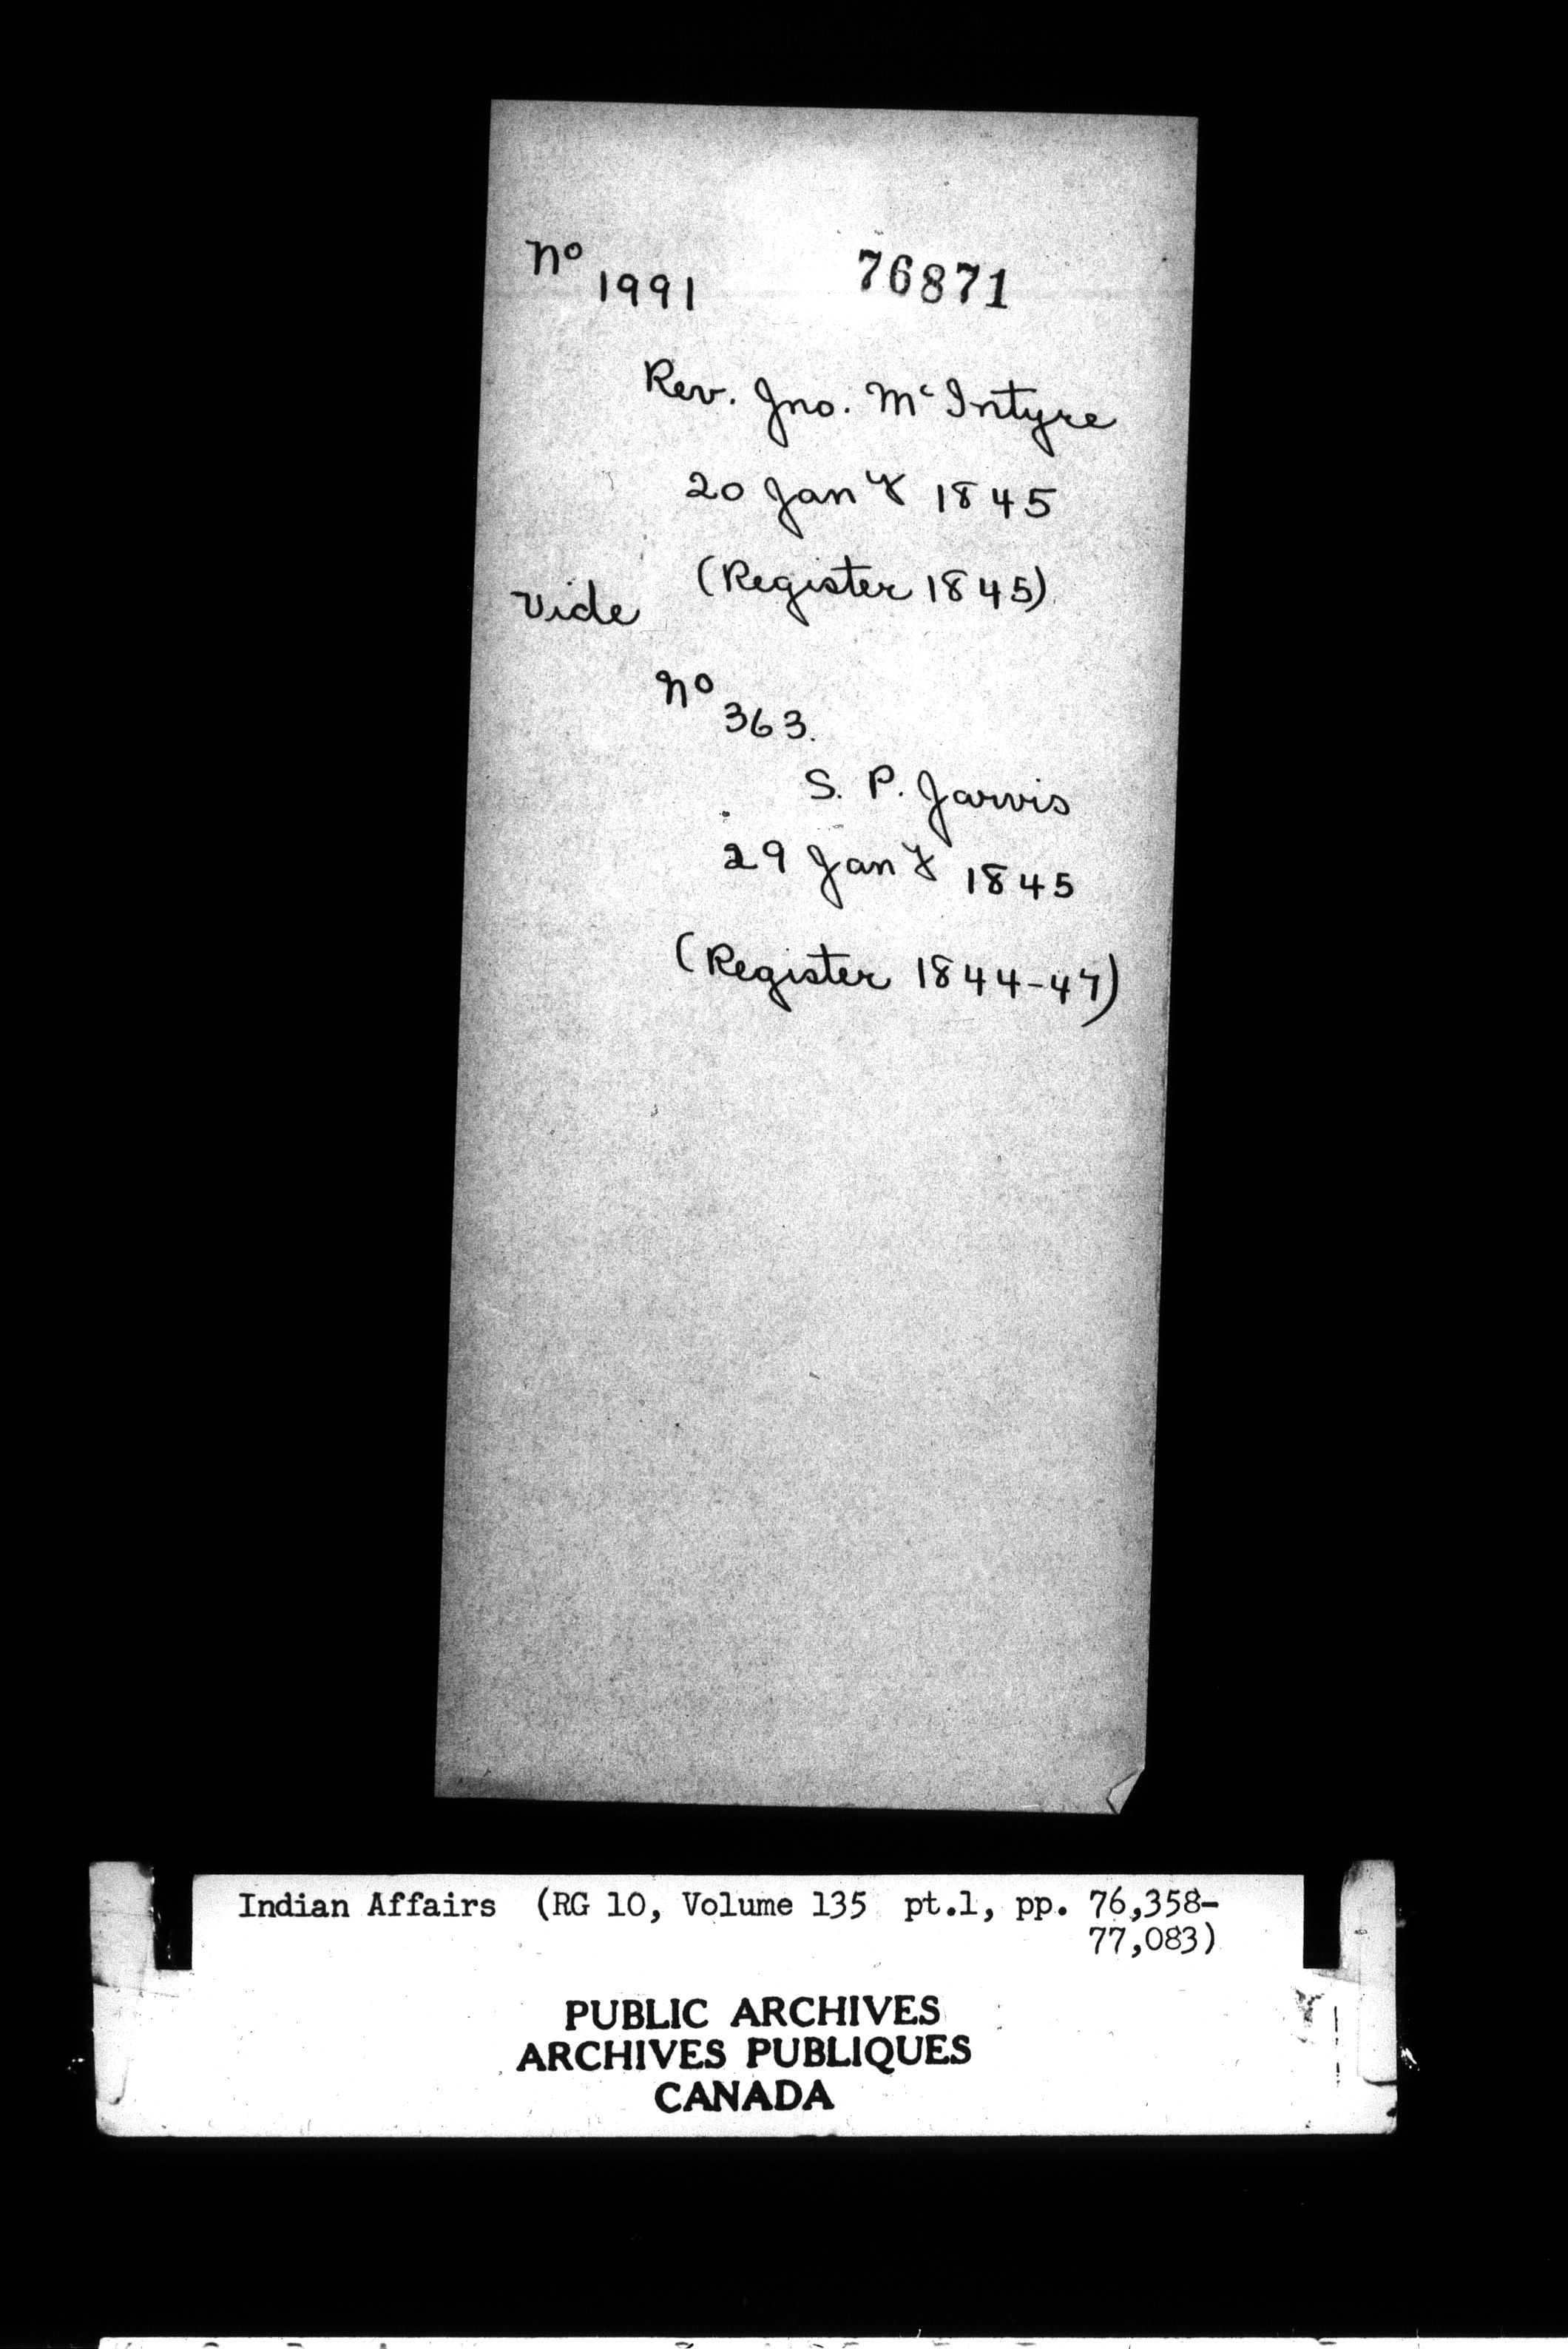 No 1991 76871
Rev. Jno. Mc Intyre
20 Jany 1845
(Register 1845)
Vide
No 363.
S. P. Jarvis
29 Jany 1845
(Register 1844-47)
Indian Affairs (RG 10, Volume 135 pt.1, pp. 76,358-
77,083)
PUBLIC ARCHIVES
ARCHIVES PUBLIQUES
CANADA